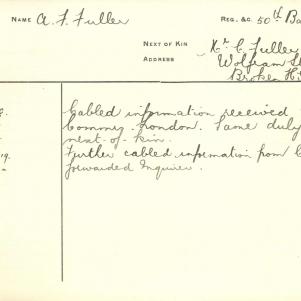 NAME A. F. Fuller
REG. &C. 50th Ba
NEXT OF KIN Mr C. Fuller
ADDRESS Wolfram St
Broken Hi
Cabled information received
Commy. London. Same duly
next-of-kin.
19. Further cabled information from C
forwarded Inquirer.